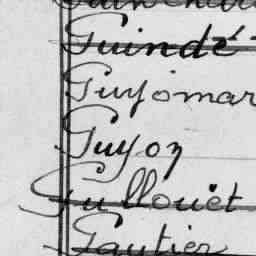 Guindé
Guyomar
Guyon
Gullouët
Gautier